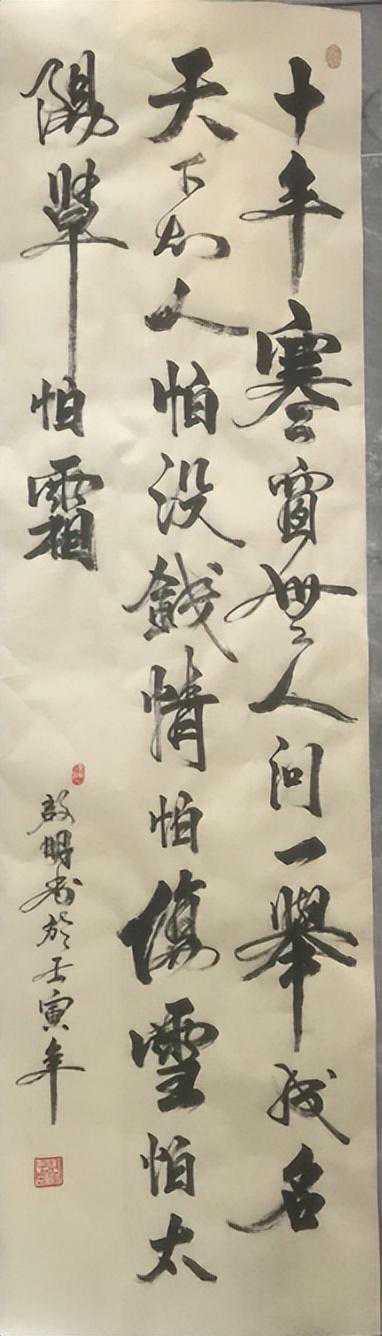 十年寒窗無人问一舉成名
天下知人怕没錢情怕傷雪怕太
陽草怕霜
啟明书於壬寅年